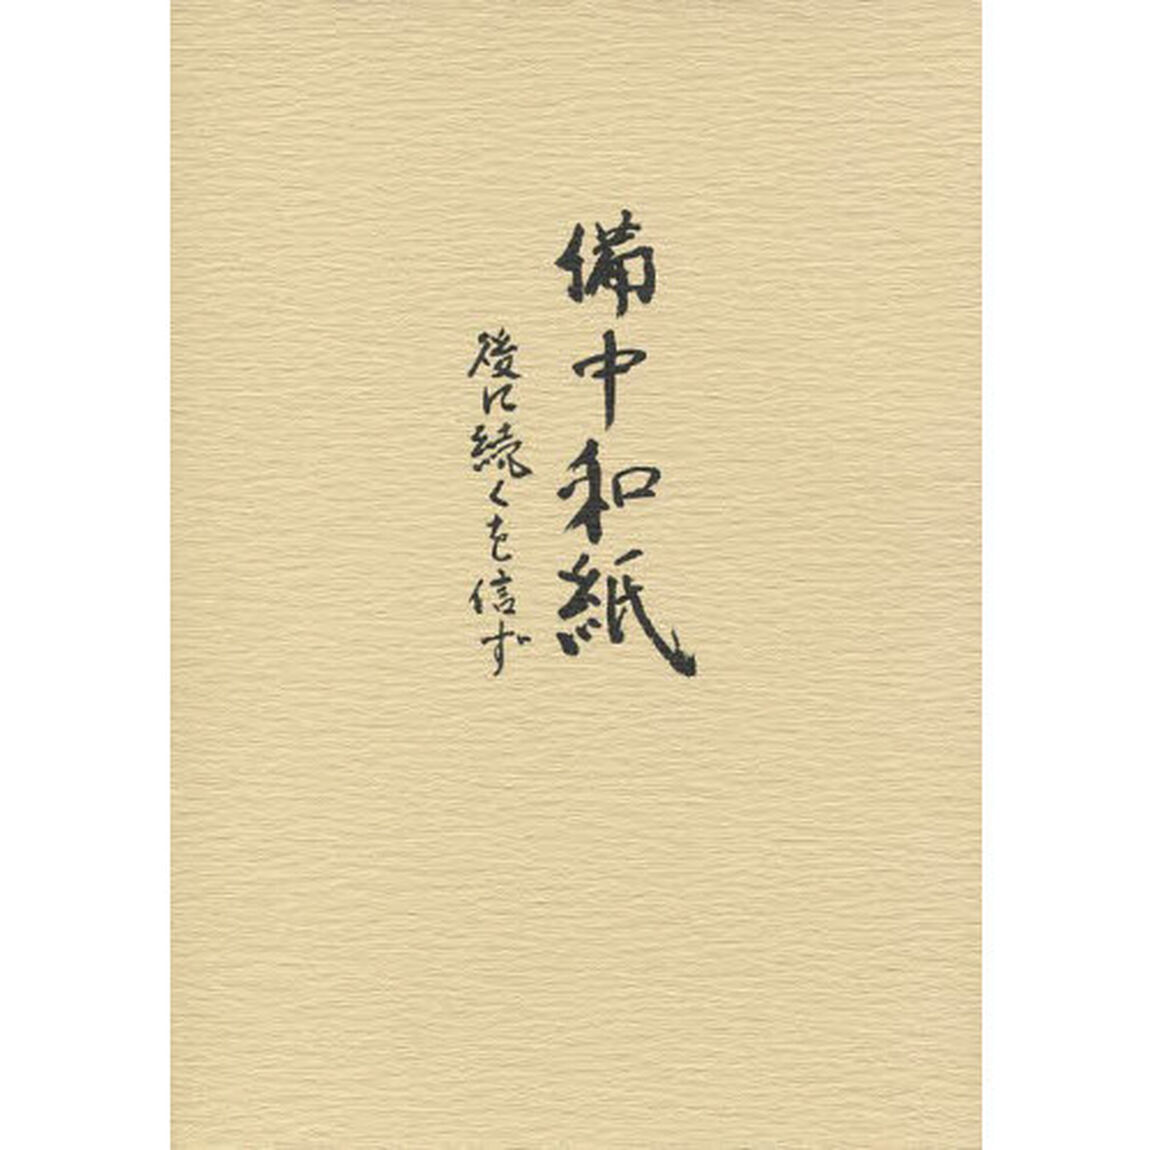 備中和紙
後に続くを信ず